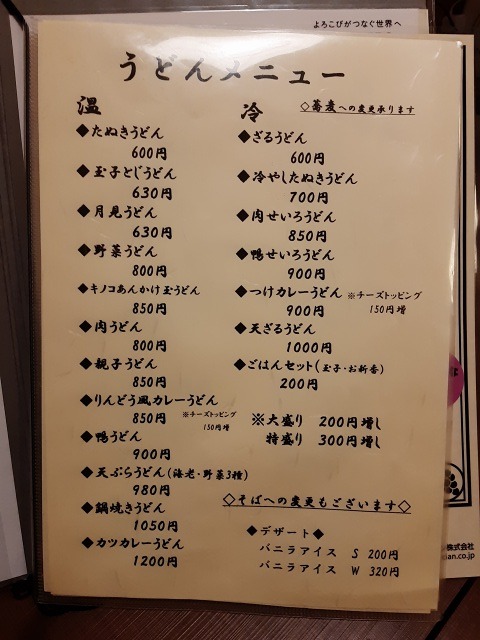 よろこびがつなぐ世界へ
うどんメニュー
温
◆たぬきうどん
600円
◆玉子とじうどん
630円
◆月見うどん
630円
◆野菜うどん
800円
◆キノコあんかけ玉うどん
850円
◆肉うどん
800円
◆親子うどん
850円
◆りんどう風カレーうどん
850円 ※チーズトッピング
150円増
◆鴨うどん
900円
◆天ぷらうどん(海老・野菜3種)
980円
◆鍋焼きうどん
1050円
◆カツカレーうどん
1200円
冷
◇蕎麦への変更承ります
◆ざるうどん
600円
◆冷やしたぬきうどん
700円
◆肉せいろうどん
850円
◆鴨せいろうどん
900円
◆つけカレーうどん ※チーズトッピング
900円 150円増
◆天ざるうどん
1000円
◆ごはんセット(玉子・お新香)
200円
※大盛り 200円増し
特盛り 300円増し
◇そばへの変更もございます◇
◆デザート◆
バニラアイス S 200円
バニラアイス W 320円
株式会社
ian.co.jp